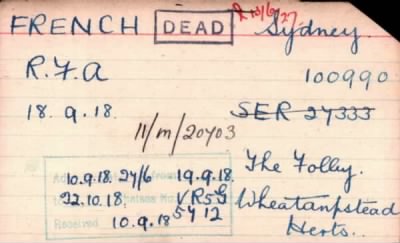 R 13/6/27.
FRENCH DEAD Sydney.
R.F.A 100990
18.9.18. SER 27333
11/m/20403
10.9.18. 27/6 19.9.18. The Folley.
22.10.18. VR5G Wheatanpstead
Received 10.9.18 5412 Herts..